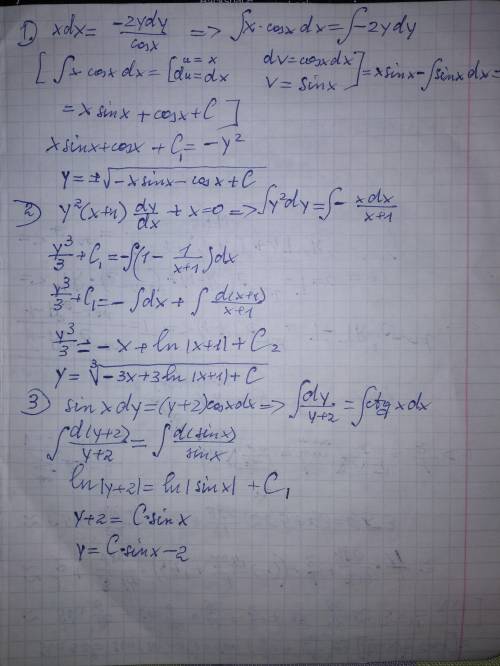 1) xdx = -2ydy/cosx => ∫x·cosxdx = ∫-2ydy
[∫x cosxdx = [u = x dv = cosxdx du = dx v = sinx] = x sinx - ∫sinxdx =
= x sinx + cosx + C]
x sinx + cosx + C₁ = -y²
y = ±√(-x sinx - cosx + C)
2) y²(x+1) dy/dx + x = 0 => ∫y²dy = ∫- xdx/(x+1)
y³/3 + C₁ = -∫(1 - 1/(x+1))dx
y³/3 + C₁ = -∫dx + ∫d(x+1)/(x+1)
y³/3 = -x + ln|x+1| + C₂
y = ∛(-3x + 3ln|x+1| + C)
3) sinxdy = (y+2)cosxdx => ∫dy/(y+2) = ∫ctgxdx
∫d(y+2)/(y+2) = ∫d(sinx)/sinx
ln|y+2| = ln|sinx| + C₁
y+2 = C·sinx
y = C·sinx - 2